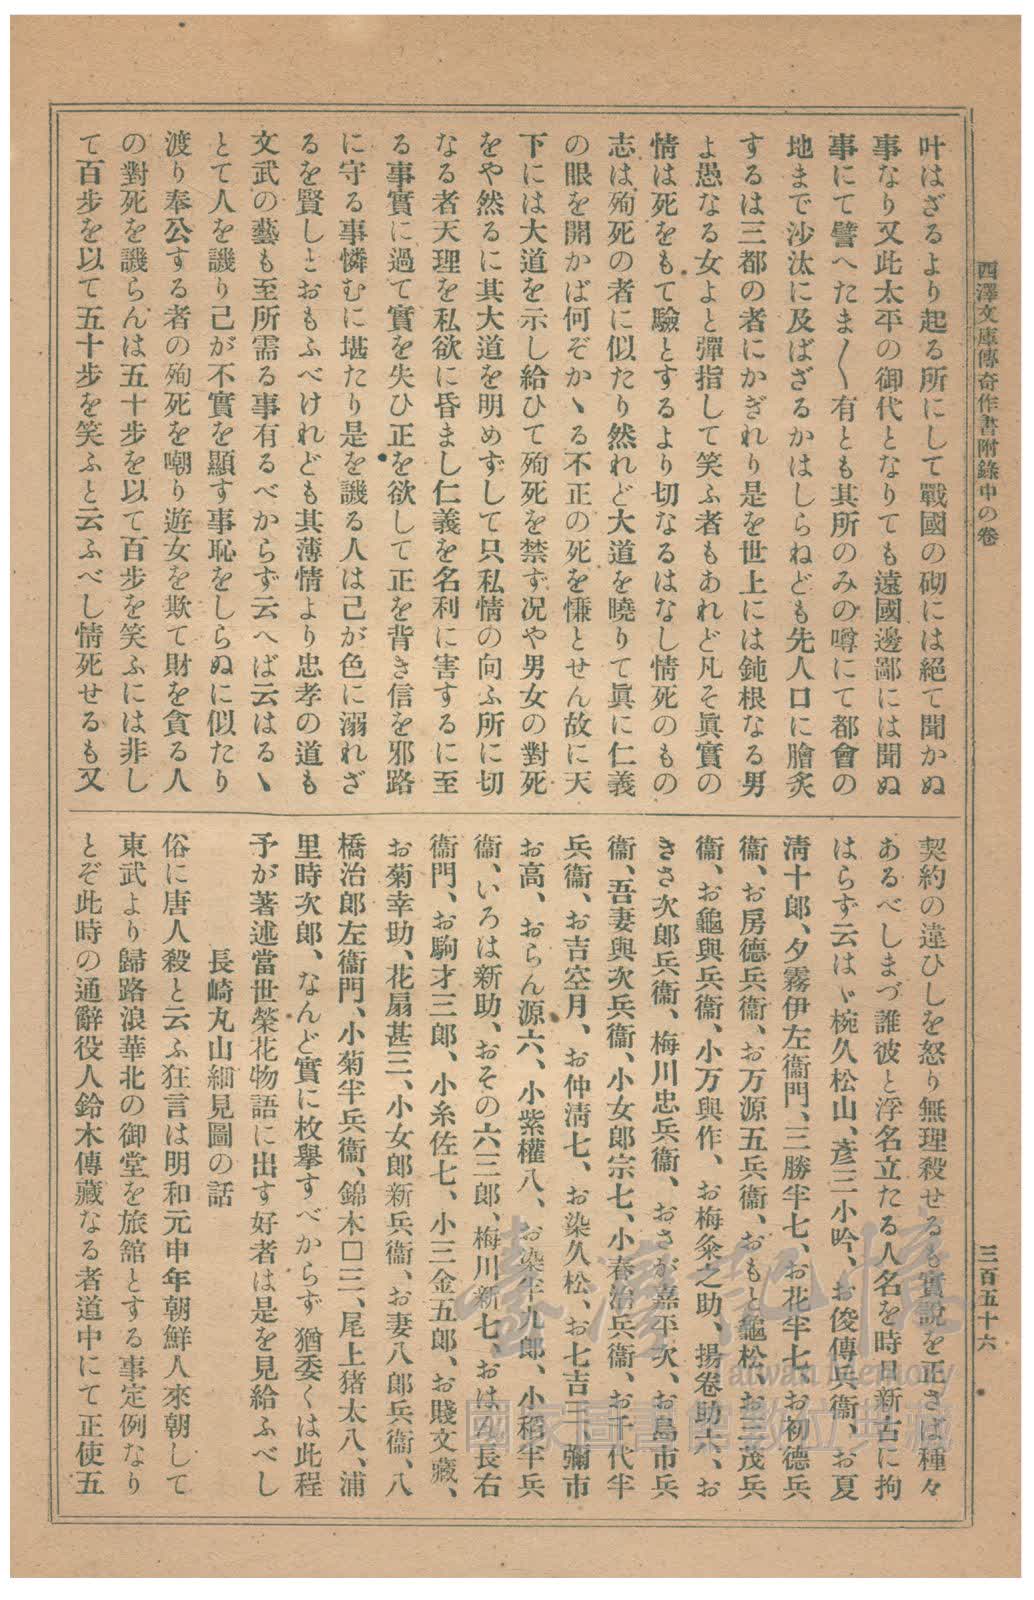 西澤文庫傳奇作書附錄中の卷
三百五十六
叶はざるより起る所にして戰國の砌には絕て聞かぬ
事なり又此太平の御代となりても遠國邊鄙には聞ぬ
事にて譬へたま〳〵有とも其所のみの噂にて都會の
地まで沙汰に及ばざるかはしらねども先人口に膾炙
するは三都の者にかぎれり是を世上には鈍根なる男
よ愚なる女よと彈指して笑ふ者もあれど凡そ眞實の
情は死をもて驗とするより切なるはなし情死のもの
志は殉死の者に似たり然れど大道を曉りて眞に仁義
の眼を開かば何ぞかゝる不正の死を慊とせん故に天
下には大道を示し給ひて殉死を禁ず况や男女の對死
をや然るに其大道を明めずして只私情の向ふ所に切
なる者天理を私欲に昏まし仁義を名利に害するに至
る事實に過て實を失ひ正を欲して正を背き信を邪路
に守る事憐むに堪たり是を譏る人は己が色に溺れざ
るを賢しとおもふべけれども其薄情より忠孝の道も
文武の藝も至所需る事有るべからず云へば云はるゝ
とて人を譏り己が不實を顯す事恥をしらぬに似たり
渡り奉公する者の殉死を嘲り遊女を欺て財を貪る人
の對死を譏らんは五十步を以て百步を笑ふには非し
て百步を以て五十步を笑ふと云ふべし情死せるも又
契約の違ひしを怒り無理殺せるも實說を正さば種々
あるべしまづ誰彼と浮名立たる人名を時日新古に拘
はらず云はゞ椀久松山、彥三小吟、お俊傳兵衞、お夏
淸十郞、夕霧伊左衞門、三勝半七、お花半七、お初德兵
衞、お房德兵衞、お万源五兵衞、おもと龜松、お三茂兵
衞、お龜與兵衞、小万與作、お梅粂之助、揚卷助六、お
きさ次郞兵衞、梅川忠兵衞、おさが嘉平次、お島市兵
衞、吾妻與次兵衞、小女郞宗七、小春治兵衞、お千代半
兵衞、お吉空月、お仲淸七、お染久松、お七吉三、彌市
お高、おらん源六、小紫權八、お染半九郞、小稻半兵
衞、いろは新助、おその六三郞、梅川新七、おはん長右
衞門、お駒才三郞、小糸佐七、小三金五郞、お賤文藏、
お菊幸助、花扇甚三、小女郞新兵衞、お妻八郞兵衞、八
橋治郞左衞門、小菊半兵衞、錦木□三、尾上猪太八、浦
里時次郞、なんど實に枚擧すべからず猶委くは此程
予が著述當世榮花物語に出す好者は是を見給ふべし
長崎丸山細見圖の話
俗に唐人殺と云ふ狂言は明和元申年朝鮮人來朝して
東武より歸路浪華北の御堂を旅舘とする事定例なり
とぞ此時の通辭役人鈴木傳藏なる者道中にて正使五
臺灣記憶
Taiwan Memory
國家圖書館數位典藏